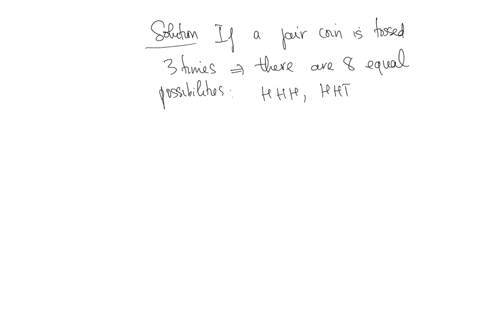 Solution If a fair coin is tossed
3 times ⇒ there are 8 equal
possibilities: HHH, HHT